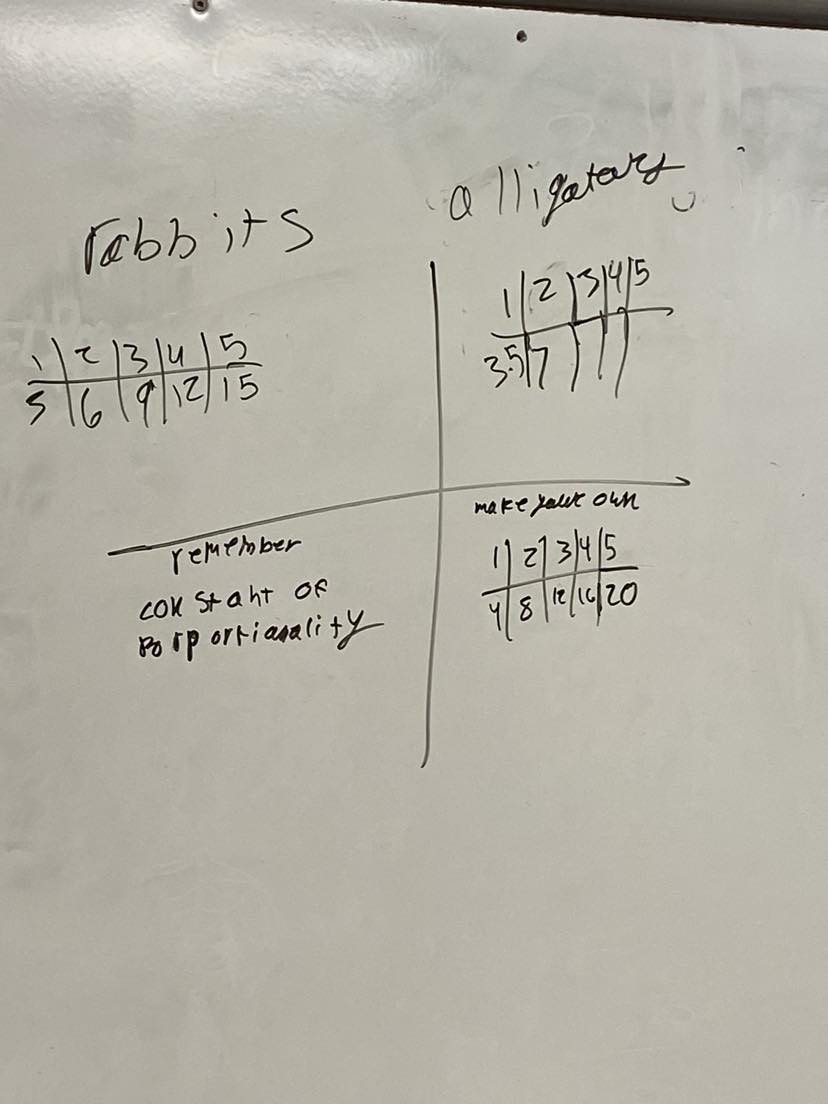 rabbits
1 2 3 4 5
3 6 9 12 15
alligators
1 2 3 4 5
3.5 7
remember
constant of
Porportianality
make your own
1 2 3 4 5
4 8 12 16 20